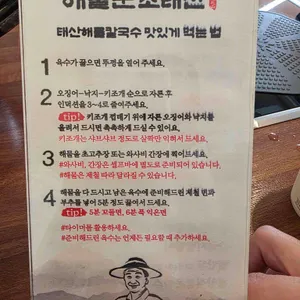 태산해물칼국수 맛있게 먹는 법
1 육수가 끓으면 뚜껑을 열어 주세요.
2 오징어-낙지-키조개 순으로 자른 후
인덕션을 3~4로 줄여주세요.
tip! 키조개 껍데기 위에 자른 오징어와 낙지를
올려서 드시면 촉촉하게 드실 수 있어요.
키조개는 샤브샤브 정도로 살짝만 익혀서 드세요.
3 해물을 초고추장 또는 와사비 간장에 찍어드세요.
#와사비, 간장은 셀프바에 별도로 준비되어 있습니다.
#해물은 제철 따라 달라질 수 있습니다.
4 해물을 다 드시고 남은 육수에 준비해드린
부추를 넣어 5분 정도 끓여서 드세요.
tip! 5분 꼬들면, 6분 푹 익은면
#타이머를 활용하세요.
#준비해드린 육수는 언제든 필요할 때 추가하세요.